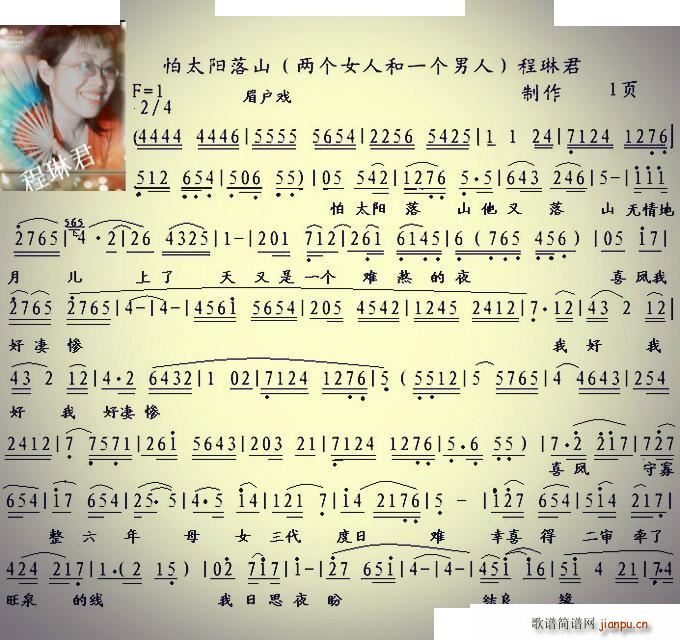 怕太阳落山（两个女人和一个男人）程琳君
F=1
2/4
眉户戏
制作
1页
程琳君
(4444 4446|5555 5654|2256 5425|1 1 24|7124 1276|
512 654|506 55)|05 542|1276 5·5|643 246|5-|111
怕太阳 落 山他又 落 山 无情地
2765|4·2|26 4325|1-|201 712|261 6145|6(765 456)|05 17|
565
月 儿 上了 天又是一个 难熬的夜 喜凤我
2765 2765|4-|4-|4561 5654|205 4542|1245 2412|7·12|43 2 12|
好凄 惨 我好 我
43 2 12|4·2 6432|1 02|7124 1276|5(5512|5 5765|4 4643|254
好 我 好凄 惨
2412|7 7571|261 5643|203 21|7124 1276|5·6 55)|7·2 217|727
喜 凤 守寡
654|17 654|25·5|4·5 14|121 7|14 2176|5-|127 654|514 217|
整 六 年 母 女 三代 度日 难 幸喜 得 二审 牵了
424 217|1·(2 15)|02 717|1-|27 651|4-|4-|451 16|51 4 21|7·4
旺泉 的线 我日思夜 盼 结良 缘
歌谱简谱网
jianpu.cn